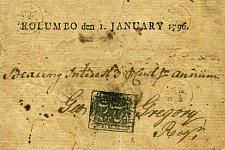 KOLUMBO den 1. JANUARY 1796.
Bearing Interest 3 P Ct P annum.
Geo Gregory
Regr.